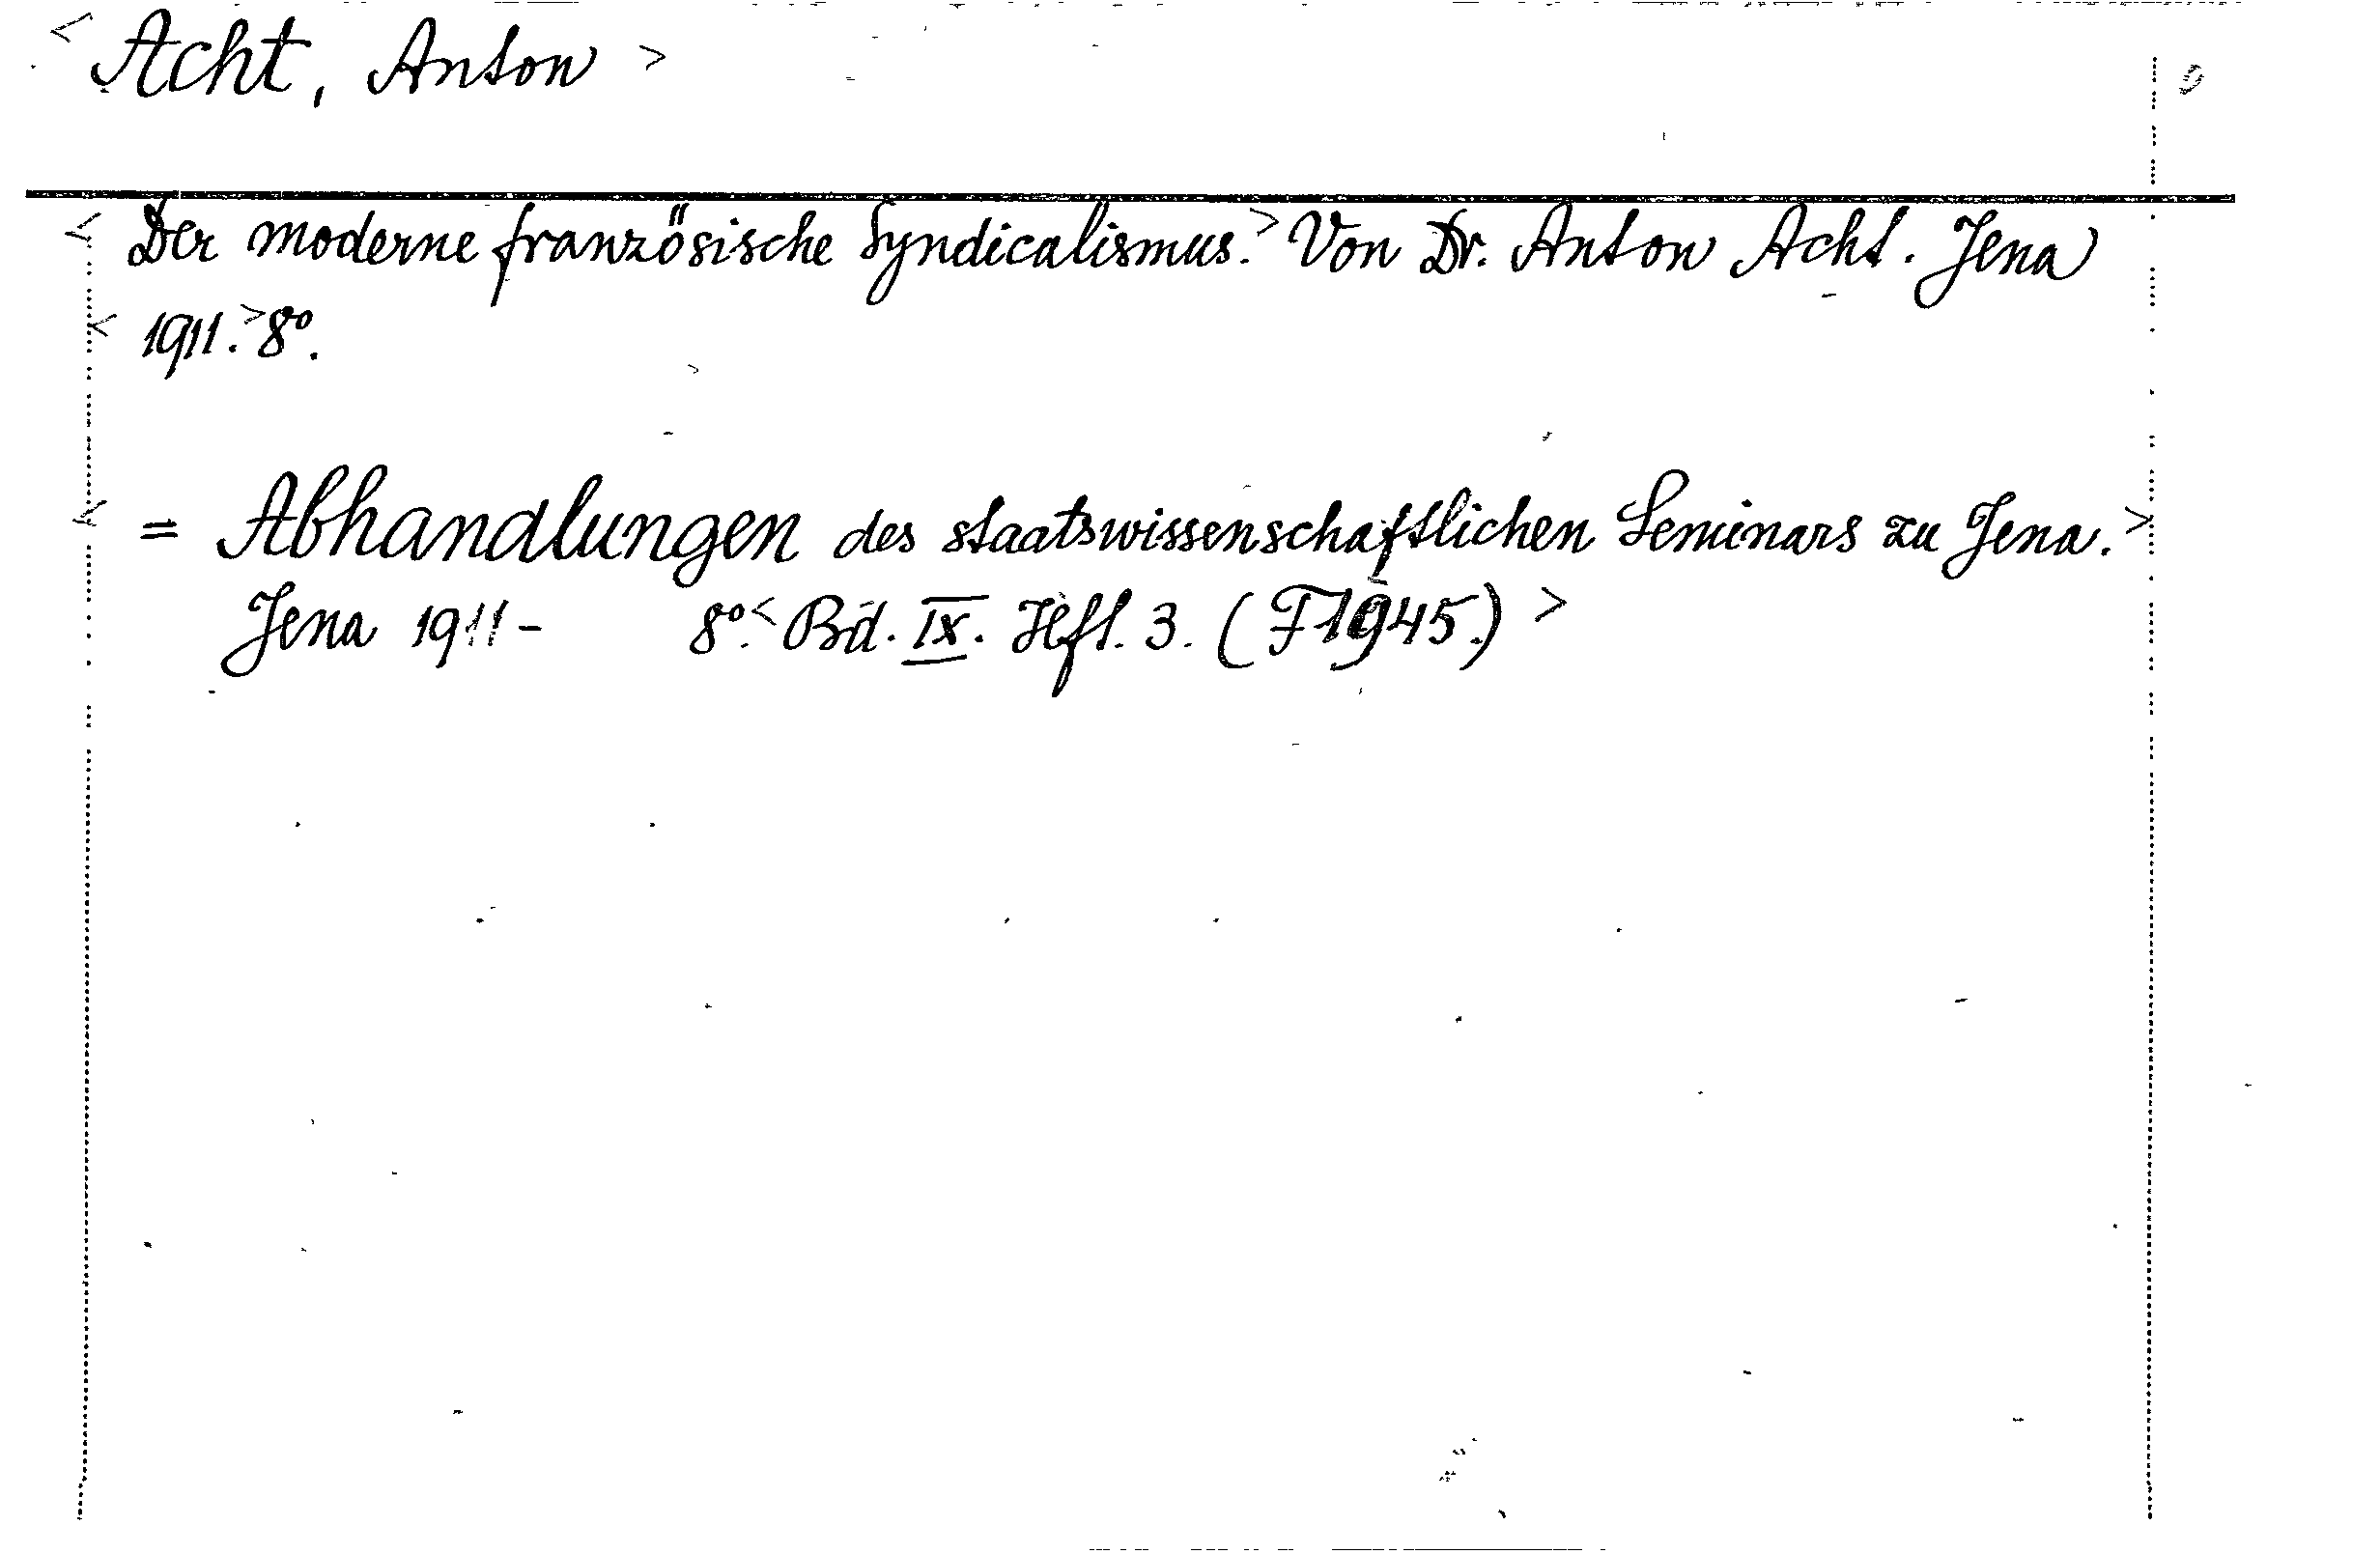 < Acht, Anton >
< Der moderne französische Syndicalismus. > Von Dr. Anton Acht. Jena
< 1911. > 8°.
< = Abhandlungen des staatswissenschaftlichen Seminars zu Jena. >
Jena 1911- 8°. < Bd. IX. Heft. 3. (F1945.) >